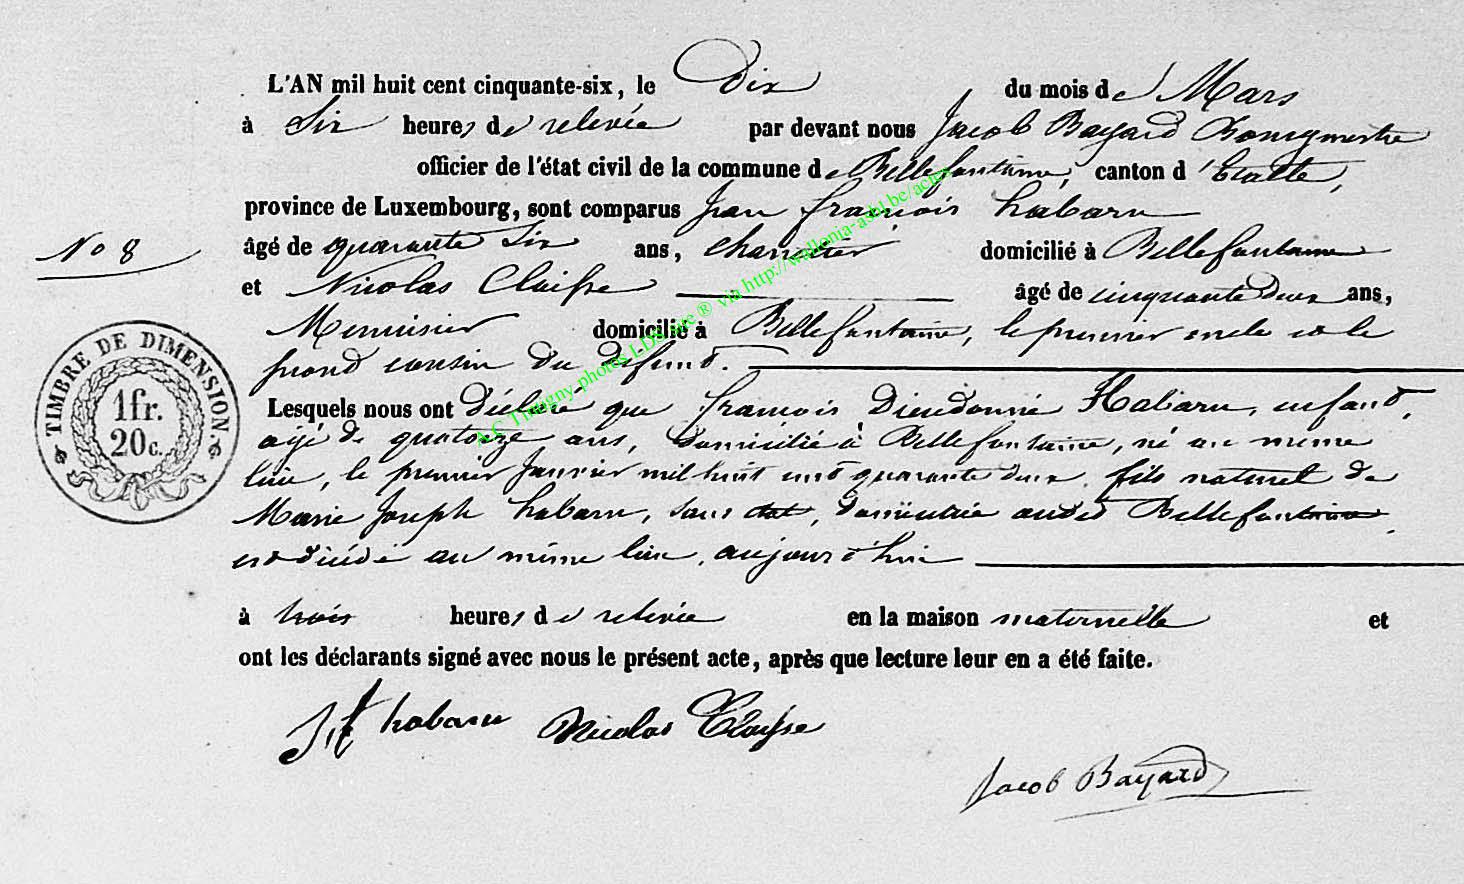 L'AN mil huit cent cinquante-six, le Dix du mois de Mars
à Six heures de relevée par devant nous Jacob Bayard Bourgmestre
officier de l'état civil de la commune de Bellefontaine, canton d'Etalle,
province de Luxembourg, sont comparus Jean françois habaru
No 8
âgé de quarante Six ans, charretier domicilié à Bellefontaine
et Nicolas Claisse âgé de cinquante deux ans,
Menuisier domicilié à Bellefontaine, le premier oncle et le
second cousin du défunt.
TIMBRE DE DIMENSION
1 fr.
20 c.
Lesquels nous ont Déclaré que françois Dieudonné Habaru, enfant,
agé de quatorze ans, domicilié à Bellefontaine, né au meme
lieu, le premier Janvier mil huit cent quarante deux, fils naturel de
Marie Joseph habaru, sans état, domiciliée audit Bellefontaine,
est décédé au même lieu, aujourd'hui
à trois heures de relevée en la maison maternelle et
ont les déclarants signé avec nous le présent acte, après que lecture leur en a été faite.
J, f habaru Nicolas Claisse
Jacob Bayard
A.C Tintigny photos LDS base ® via http://wallonia-asbl.be/actes